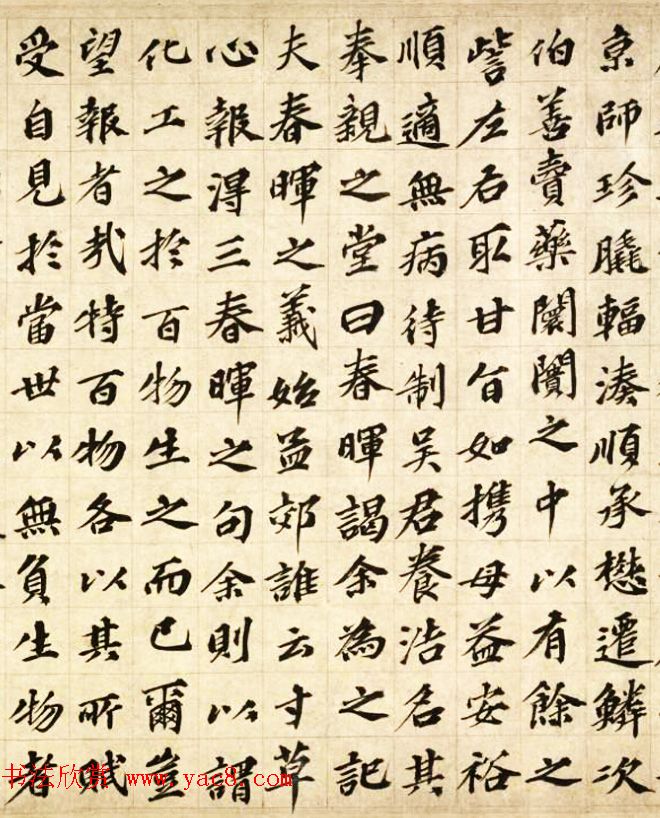 京師珍輻湊順承懋遷鱗次
伯善賣藥闤闠之中以有餘之
訾左右取甘旨如携母益安裕
順適無病待制吳君養浩名其
奉親之堂曰春暉謁余為之記
夫春暉之義始孟郊誰云寸草
心報得三春暉之句余則以謂
化工之於百物生之而已爾豈
望報者哉特百物各以其所賦
受自見於當世以無負生物者
书法欣赏 www.yac8.com